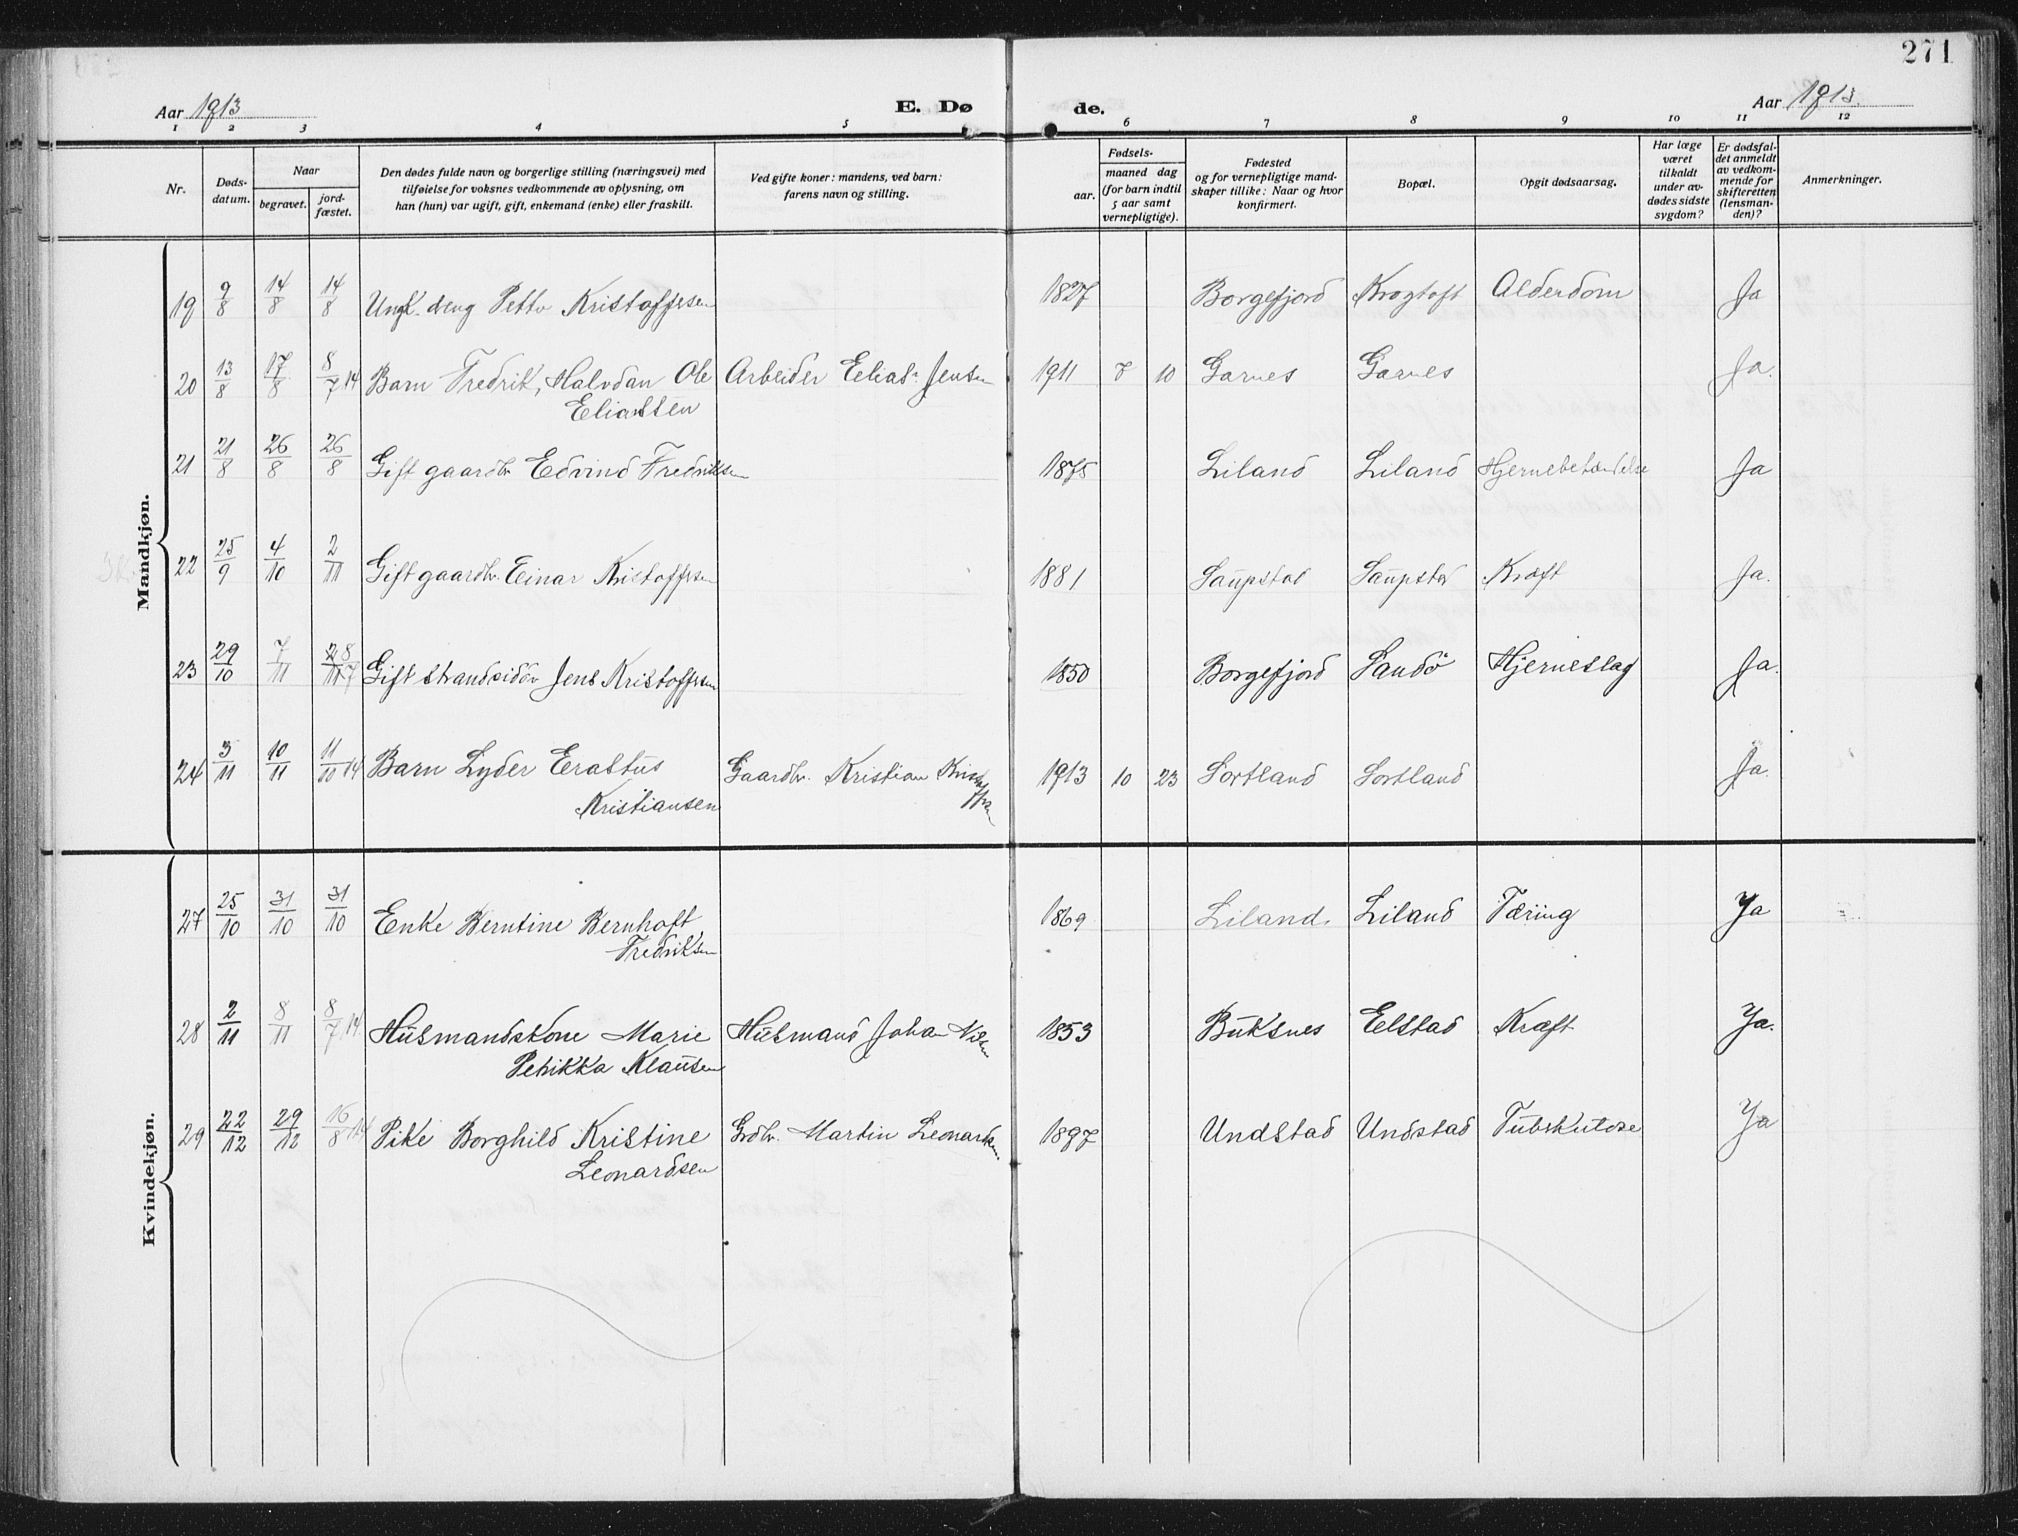 271
Aar 1913
E. Dø
de.
Aar 1913.
1 2 3 4 5 6 7 8 9 10 11 12
Nr.
Døds-
datum.
Naar
begravet.
jord-
fæstet.
Den dødes fulde navn og borgerlige stilling (næringsvei) med
tilføielse for voksnes vedkommende av oplysning, om
han (hun) var ugift, gift, enkemand (enke) eller fraskilt.
Ved gifte koner: mandens, ved barn:
farens navn og stilling.
Fødsels-
aar.
maaned dag
(for barn indtil
5 aar samt
vernepligtige).
Fødested
og for vernepligtige mand-
skaper tillike: Naar og hvor
konfirmert.
Bopæl.
Opgit dødsaarsag.
Har læge
været
tilkaldt
under av-
dødes sidste
sygdom?
Er dødsfal-
det anmeldt
av vedkom-
mende for
skifteretten
(lensman-
den)?
Anmerkninger.
Mandkjøn.
19 9/8 14/8 14/8 Ungk. dreng Petter Kristoffersen 1827 Borgefjord Krogtoft Alderdom Ja
20 13/8 17/8 8/7 14 Barn Fredrik, Halvdan Ole Arbeider Elias Jensen 1911 7 10 Garnes Garnes Ja.
Eliassen
21 21/8 26/8 26/8 Gift gaardbr. Edvind Fredriksen 1875 Liland Liland Hjernebetændelse Ja
22 25/9 4/10 2/11 Gift gaardbr. Einar Kristoffersen 1881 Saupstad Saupstad Kræft Ja.
23 29/10 7/11 Gift strandsidder Jens Kristoffersen 1850 Borgefjord Sandö Hjerneslag Ja.
24 3/11 10/11 11/10 14 Barn Lyder Erastus Gaardbr. Kristian 1913 10 23 Sortland Sortland Ja.
Kristiansen
Kvindekjøn.
27 25/10 31/10 31/10 Enke Berntine Bernhoft 1869 Liland. Liland Tæring Ja
Fredriksen
28 2/11 8/11 8/7 14 Husmandskone Marie Husmand Johan 1853 Buksnes Eelstad Kræft Ja.
Petrikka Klausen
29 22/12 29/12 16/8 14 Pike Borghild Kristine Grdbr. Martin Leonardsen. 1897 Undstad Undstad Tuberkulose Ja
Leonardsen